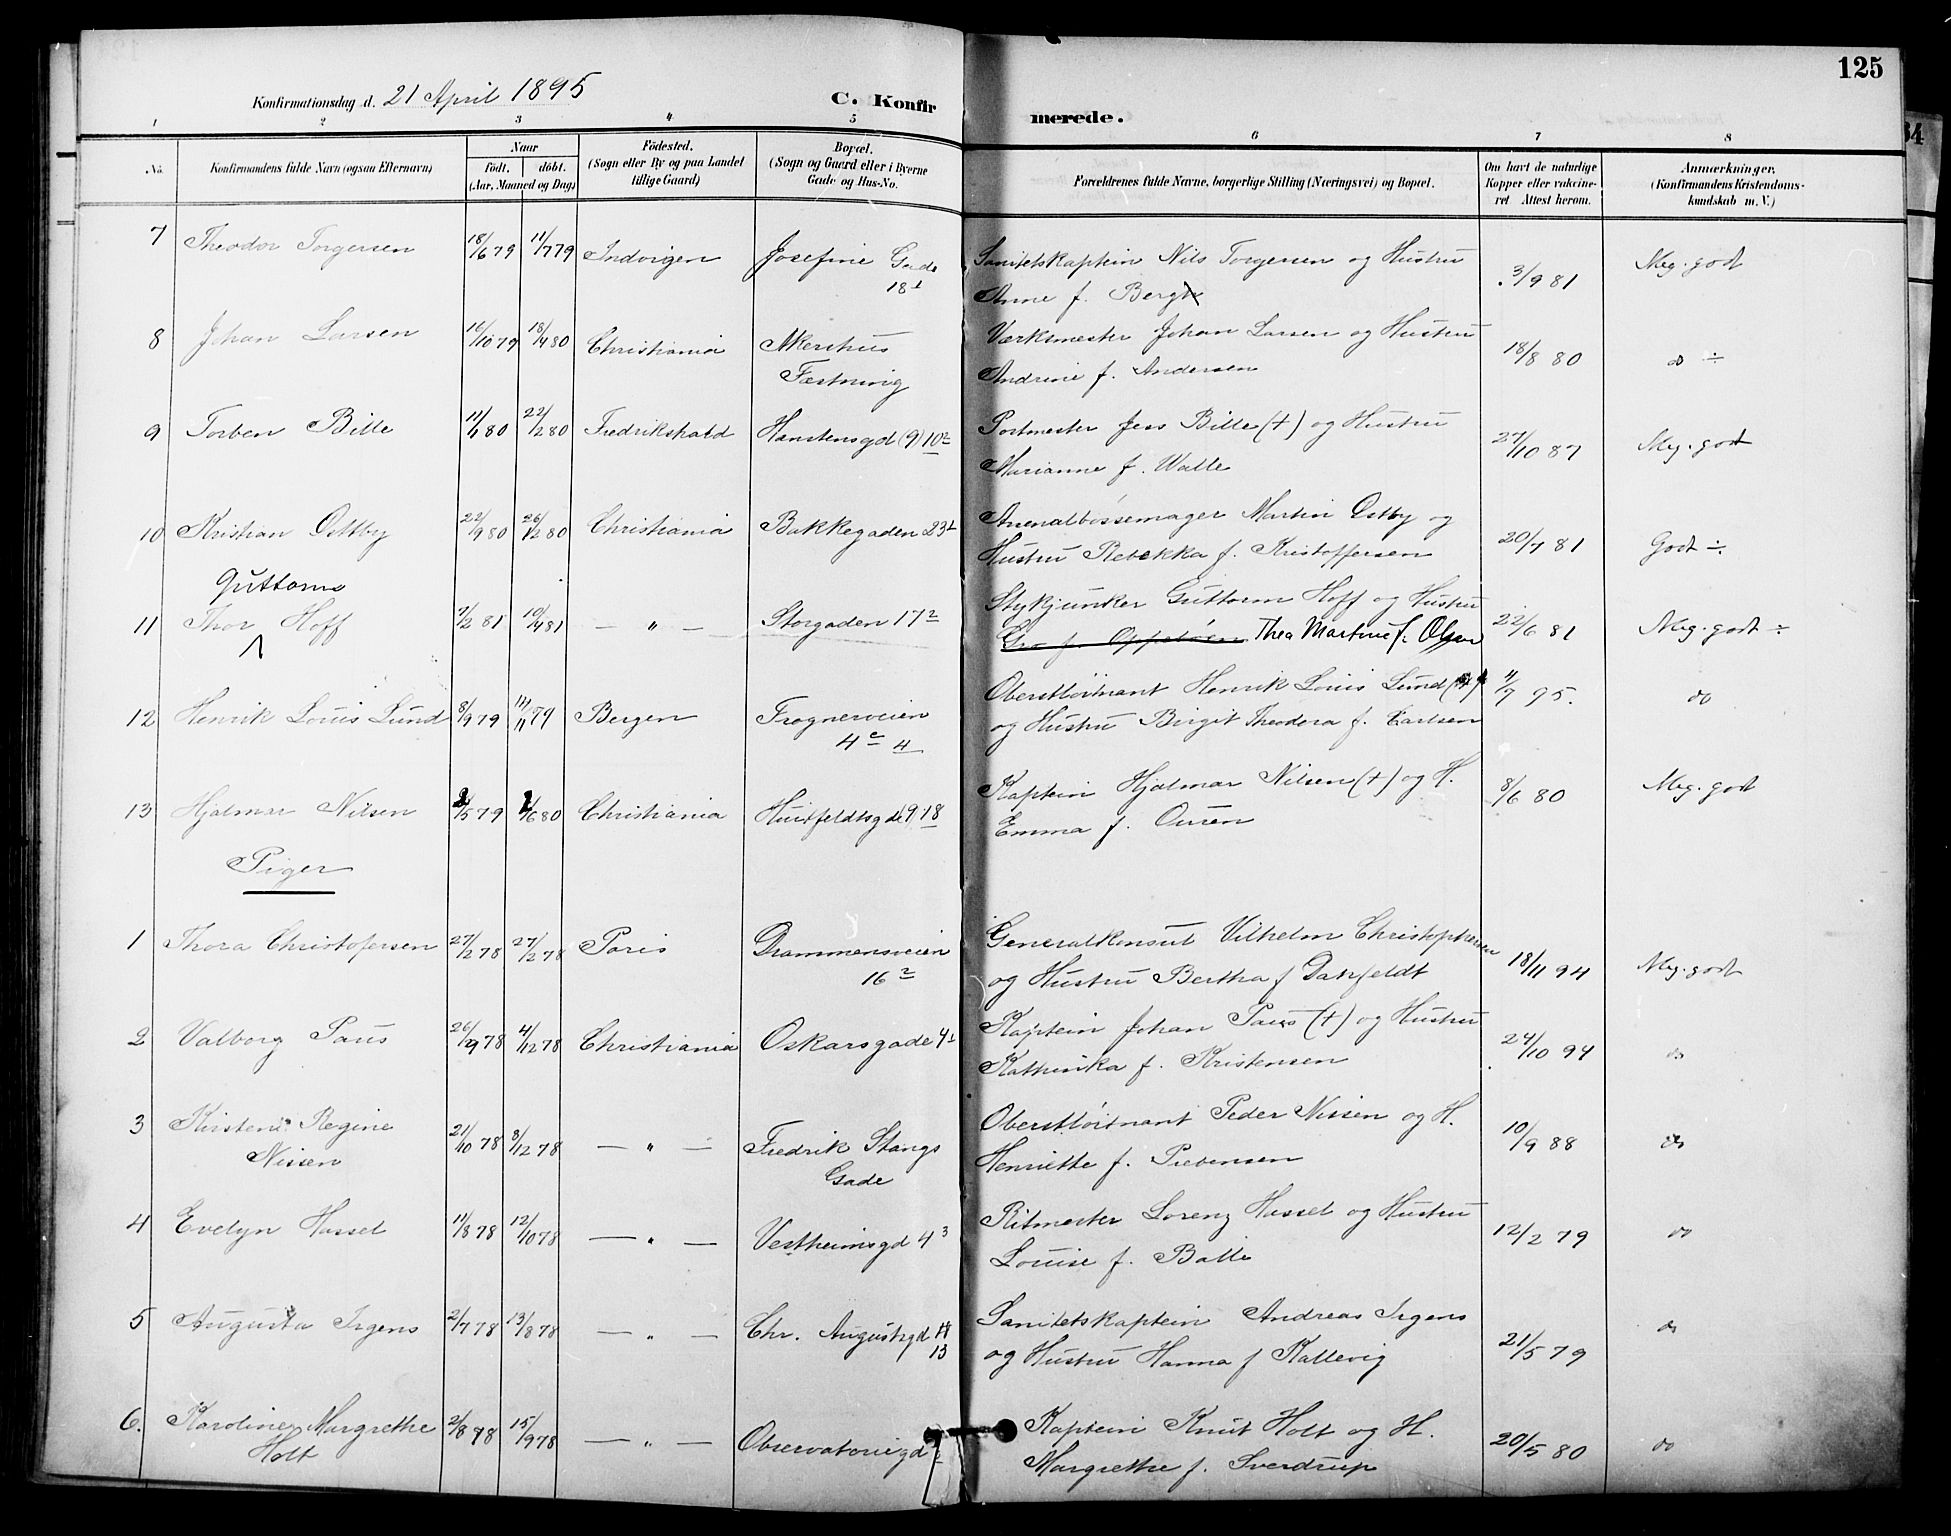 125
Konfirmationsdag d. 21 April 1895
C. Konfir
merede.
1 2 3 4 5 6 7 8
No.
Konfirmandens fulde Navn (ogsaa Efternavn)
Naar
födt. döbt.
(Aar, Maaned og Dag)
Födested.
(Sogn eller By og paa Landet
tillige Gaard)
Bopæl.
(Sogn og Gaard eller i Byerne
Gade og Hus-No.
Forældrenes fulde Navne, borgerlige Stilling (Næringsvei) og Bopæl.
Om havt de naturlige
Kopper eller vakcine-
ret Attest herom.
Anmærkninger.
(Konfirmandens Kristendoms-
kundskab m. V.)
7 Theodor Torgersen 18/6 79 11/7 79 Indvigen Josefine Gade
18 1
Sanitetskaptein Nils Torgersen og Hustru
Anne f. Berg
3/9 81 Meg. godt
8 Johan Larsen 16/10 79 18/4 80 Christiania Akershus
Fæstning
Værksmester Johan Larsen og Hustru
Andrine f. Andersen
18/8 80 do ÷
9 Torben Bille 11/1 80 22/2 80 Fredrikshald Hanstensgd (9) 10 2
Postmester Jess Bille (+) og Hustru
Marianne f. Walle
27/10 87 Meg. godt
10 Kristian Ostby 22/9 80 26/12 80 Christiania Bakkegaden 23 1
Arsenalbøssemager Martin Ostby og
Hustru Rebekka f. Kristoffersen
20/7 81 Godt ÷
Guttorm
11 Thor Hoff 7/2 81 10/4 81 — " — Storgaden 17 2
Stykjunker Guttorm Hoff og Hustru
Thea Martine f. Olsen
22/6 81 Meg. godt ÷
12 Henrik Louis Lund 8/9 79 14/11 79 Bergen Frognerveien
4 c 4
Oberstløitnant Henrik Louis Lund
og Hustru Birgit Theodora f. Carlsen
11/7 95. do
13 Hjalmar Nilsen /5 79 /6 80 Christiania Huitfeldtsgd (9) 18
Kaptein Hjalmar Nilsen (+) og H.
Emma f. Ousen
8/6 80 Meg. godt
Piger
1 Thora Christofersen 27/2 78 27/2 78 Paris Drammensveien
16 2
Generalkonsul Vilhelm Christophersen
og Hustru Bertha f Dahfeldt
18/11 94 Meg. godt
2 Valborg Paus 26/9 78 4/12 78 Christiania Oskarsgade 4 1
Kaptein Johan Paus (+) og Hustru
Kathinka f. Kristensen
24/10 94 do
3 Kirstene Regine
Nissen
21/10 78 8/12 78 — " — Fredrik Stangs
Gade
Oberstløitnant Peder Nissen og H.
Henriette f. Prebensen
10/9 88 do
4 Evelyn Hassel 11/8 78 12/10 78 — " — Vestheimsgd 4 3
Ritmester Lorenz Hassel og Hustru
Louise f. Balle
12/2 79 do
5 Augusta Irgens 2/7 78 13/8 78 — " — Chr. Augustsgd
13
Sanitetskaptein Andreas Irgens
og Hustru Hanna f Kallevig
21/5 79 do
6. Karoline Margrethe
Holt
2/8 78 15/9 78 — " — Observatoriegd
Kaptein Knut Holt og H.
Margrethe f. Sverdrup
20/5 80 do